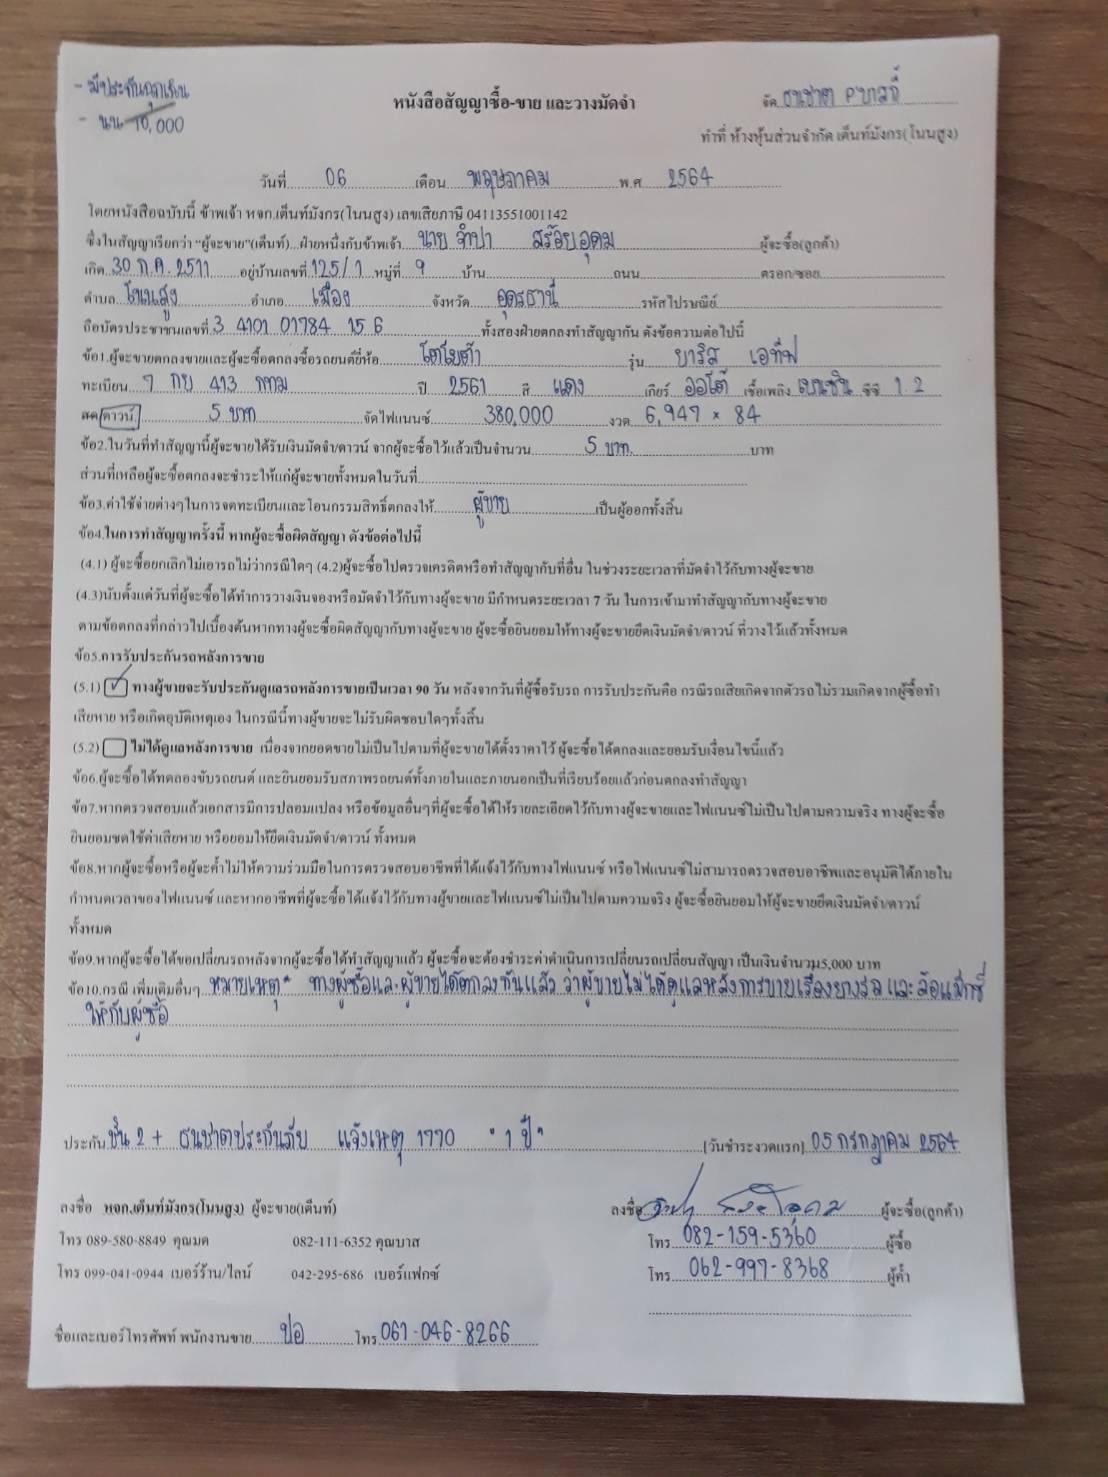 - มีประกันฉุกเฉิน
- นน 10,000
หนังสือสัญญาซื้อ-ขาย และวางมัดจำ
จัด ธนชาต
ทำที่ ห้างหุ้นส่วนจำกัด เต็นท์มังกร(โนนสูง)
วันที่ 06 เดือน พฤษภาคม พ.ศ 2564
โดยหนังสือฉบับนี้ ข้าพเจ้า หจก.เต็นท์มังกร(โนนสูง) เลขเสียภาษี 04113551001142
ซึ่งในสัญญาเรียกว่า "ผู้จะขาย"(เต็นท์)...ฝ่ายหนึ่งกับข้าพเจ้า นาย จำปา สร้อยอุดม ผู้จะซื้อ(ลูกค้า)
เกิด 30 ก.ค. 2511 อยู่บ้านเลขที่ 125/1 หมู่ที่ 9 บ้าน ถนน ตรอก/ซอย
ตำบล โนนสูง อำเภอ เมือง จังหวัด อุดรธานี รหัสไปรษณีย์
ถือบัตรประชาชนเลขที่ 3 4101 01784 15 6 ทั้งสองฝ่ายตกลงทำสัญญากัน ดังข้อความต่อไปนี้
ข้อ1.ผู้จะขายตกลงขายและผู้จะซื้อตกลงซื้อรถยนต์ยี่ห้อ โตโยต้า รุ่น ยาริส เอทีฟ
ทะเบียน 7 กย 413 กทม ปี 2561 สี แดง เกียร์ ออโต้ เชื้อเพลิง เบนซิน ซีซี 1.2
สด/ดาวน์ 5 บาท จัดไฟแนนซ์ 380,000 งวด 6,947 × 84
ข้อ2.ในวันที่ทำสัญญานี้ผู้จะขายได้รับเงินมัดจำ/ดาวน์ จากผู้จะซื้อไว้แล้วเป็นจำนวน 5 บาท. บาท
ส่วนที่เหลือผู้จะซื้อตกลงจะชำระให้แก่ผู้จะขายทั้งหมดในวันที่
ข้อ3.ค่าใช้จ่ายต่างๆในการจดทะเบียนและโอนกรรมสิทธิ์ตกลงให้ ผู้ขาย เป็นผู้ออกทั้งสิ้น
ข้อ4.ในการทำสัญญาครั้งนี้ หากผู้จะซื้อผิดสัญญา ดังข้อต่อไปนี้
(4.1) ผู้จะซื้อยกเลิกไม่เอารถไม่ว่ากรณีใดๆ (4.2)ผู้จะซื้อไปตรวจเครดิตหรือทำสัญญากับที่อื่น ในช่วงระยะเวลาที่มัดจำไว้กับทางผู้จะขาย
(4.3)นับตั้งแต่วันที่ผู้จะซื้อได้ทำการวางเงินจองหรือมัดจำไว้กับทางผู้จะขาย มีกำหนดระยะเวลา 7 วัน ในการเข้ามาทำสัญญากับทางผู้จะขาย
ตามข้อตกลงที่กล่าวไปเบื้องต้นหากทางผู้จะซื้อผิดสัญญากับทางผู้จะขาย ผู้จะซื้อยินยอมให้ทางผู้จะขายยึดเงินมัดจำ/ดาวน์ ที่วางไว้แล้วทั้งหมด
ข้อ5.การรับประกันรถหลังการขาย
(5.1) ✓ ทางผู้ขายจะรับประกันดูแลรถหลังการขายเป็นเวลา 90 วัน หลังจากวันที่ผู้ซื้อรับรถ การรับประกันคือ กรณีรถเสียเกิดจากตัวรถไม่รวมเกิดจากผู้ซื้อทำ
เสียหาย หรือเกิดอุบัติเหตุเอง ในกรณีนี้ทางผู้ขายจะไม่รับผิดชอบใดๆทั้งสิ้น
(5.2) ไม่ได้ดูแลหลังการขาย เนื่องจากยอดขายไม่เป็นไปตามที่ผู้จะขายได้ตั้งราคาไว้ ผู้จะซื้อได้ตกลงและยอมรับเงื่อนไขนี้แล้ว
ข้อ6.ผู้จะซื้อได้ทดลองขับรถยนต์ และยินยอมรับสภาพรถยนต์ทั้งภายในและภายนอกเป็นที่เรียบร้อยแล้วก่อนตกลงทำสัญญา
ข้อ7.หากตรวจสอบแล้วเอกสารมีการปลอมแปลง หรือข้อมูลอื่นๆที่ผู้จะซื้อได้ให้รายละเอียดไว้กับทางผู้จะขายและไฟแนนซ์ไม่เป็นไปตามความจริง ทางผู้จะซื้อ
ยินยอมชดใช้ค่าเสียหาย หรือยอมให้ยึดเงินมัดจำ/ดาวน์ ทั้งหมด
ข้อ8.หากผู้จะซื้อหรือผู้จะค้ำไม่ให้ความร่วมมือในการตรวจสอบอาชีพที่ได้แจ้งไว้กับทางไฟแนนซ์ หรือไฟแนนซ์ไม่สามารถตรวจสอบอาชีพและอนุมัติได้ภายใน
กำหนดเวลาของไฟแนนซ์ และหากอาชีพที่ผู้จะซื้อได้แจ้งไว้กับทางผู้ขายและไฟแนนซ์ไม่เป็นไปตามความจริง ผู้จะซื้อยินยอมให้ผู้จะขายยึดเงินมัดจำ/ดาวน์
ทั้งหมด
ข้อ9.หากผู้จะซื้อได้ขอเปลี่ยนรถหลังจากผู้จะซื้อได้ทำสัญญาแล้ว ผู้จะซื้อจะต้องชำระค่าดำเนินการเปลี่ยนรถเปลี่ยนสัญญา เป็นเงินจำนวน5,000 บาท
ข้อ10.กรณี เพิ่มเติมอื่นๆ หมายเหตุ* ทางผู้ซื้อและผู้ขายได้ตกลงกันแล้ว ว่าผู้ขายไม่ได้ดูแลหลังการขายเรื่องยางรถ และล้อแม็กซ์
ให้กับผู้ซื้อ
ประกัน ชั้น 2+ ธนชาตประกันภัย แจ้งเหตุ 1770 "1 ปี" [วันชำระงวดแรก] 05 กรกฎาคม 2564
ลงชื่อ หจก.เต็นท์มังกร(โนนสูง) ผู้จะขาย(เต็นท์) ลงชื่อ ผู้จะซื้อ(ลูกค้า)
โทร 089-580-8849 คุณมด 082-111-6352 คุณบาส โทร 082-159-5360 ผู้ซื้อ
โทร 099-041-0944 เบอร์ร้าน/ไลน์ 042-295-686 เบอร์แฟกซ์ โทร 062-997-8368 ผู้ค้ำ
ชื่อและเบอร์โทรศัพท์ พนักงานขาย ปอ โทร 061-046-8266